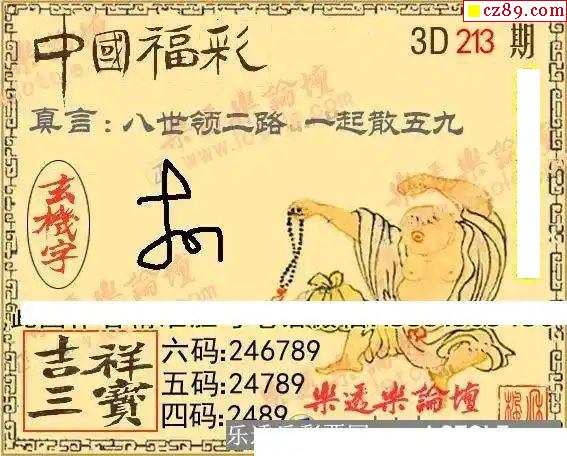 cz89.com
中國福彩
3D 213 期
真言：八世领二路 一起散五九
玄機字
吉祥三寶
六码:246789
五码:24789
四码:2489
樂透樂論壇